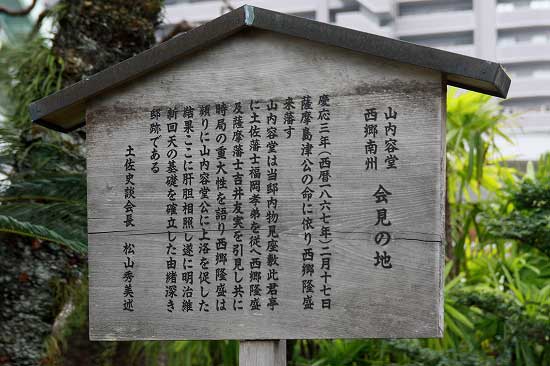 山内容堂
西郷南州 会見の地
慶応三年(西暦一八六七年)二月十七日
薩摩島津公の命に依り西郷隆盛
来藩す
山内容堂は当邸内物見座敷此君亭
に土佐藩士福岡孝弟を従へ西郷隆盛
及薩摩藩士吉井友実を引見し共に
時局の重大性を語り西郷隆盛は
頻りに山内容堂公に上洛を促した
結果ここに肝胆相照し遂に明治維
新回天の基礎を確立した由緒深き
邸跡である
土佐史談会長 松山秀美述